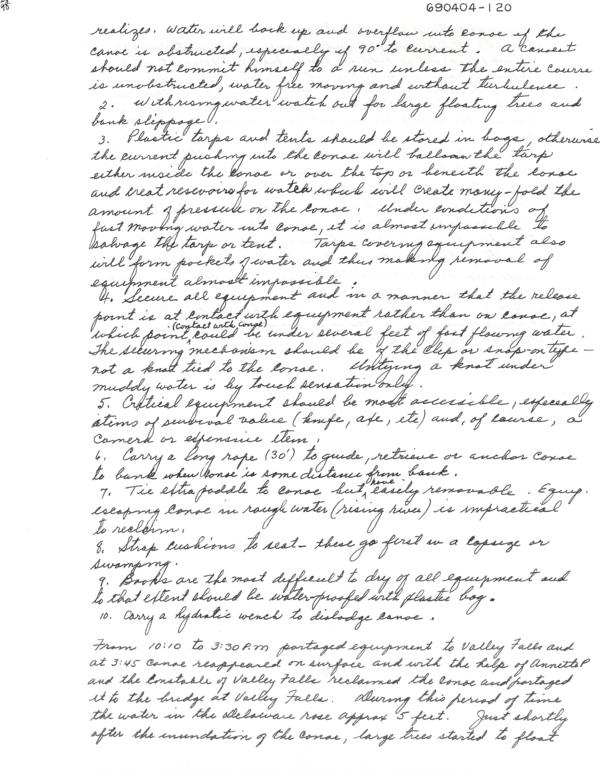 690404-120
realizes. Water will back up and overflow into canoe if the
canoe is obstructed, especially if 90° to current. A canoest
should not commit himself to a run unless the entire course
is unobstructed, water free moving and without turbulence.
2. With rising water watch out for large floating trees and
bank slippage.
3. Plastic tarps and tents should be stored in bags, otherwise
the current pushing into the canoe will balloon the tarp
either inside the canoe or over the top or beneath the canoe
and creat resevoirs for water which will create many-fold the
amount of pressure on the canoe. Under conditions of
fast moving water into canoe, it is almost impossible to
salvage the tarp or tent. Tarps covering equipment also
will form pockets of water and thus making removal of
equipment almost impossible.
4. Secure all equipment and in a manner that the release
point is at contact with equipment rather than on canoe, at
which point (contact with canoe) could be under several feet of fast flowing water.
The securing mechanism should be of the clip or snap-on type -
not a knot tied to the canoe. Untying a knot under
muddy water is by touch sensation only.
5. Critical equipment should be most accessible, especially
items of survival value (knife, axe, etc) and, of course, a
camera or expensive item.
6. Carry a long rope (30') to guide, retrieve or anchor canoe
to bank when canoe is some distance from bank.
7. Tie extra paddle to canoe but have easily removable. Equip.
escaping canoe in rough water (rising river) is impractical
to reclaim.
8. Strap cushions to seat - these go first in a capsize or
swamping.
9. Books are the most difficult to dry of all equipment and
to that extent should be water-proofed with plastic bag.
10. Carry a hydratic wench to dislodge canoe.
From 10:10 to 3:30 P.M portaged equipment to Valley Falls and
at 3:45 canoe reappeared on surface and with the help of Annette P
and the Constable of Valley Falls reclaimed the canoe and portaged
it to the bridge at Valley Falls. During this period of time
the water in the Delaware rose approx 5 feet. Just shortly
after the inundation of the canoe, large trees started to float